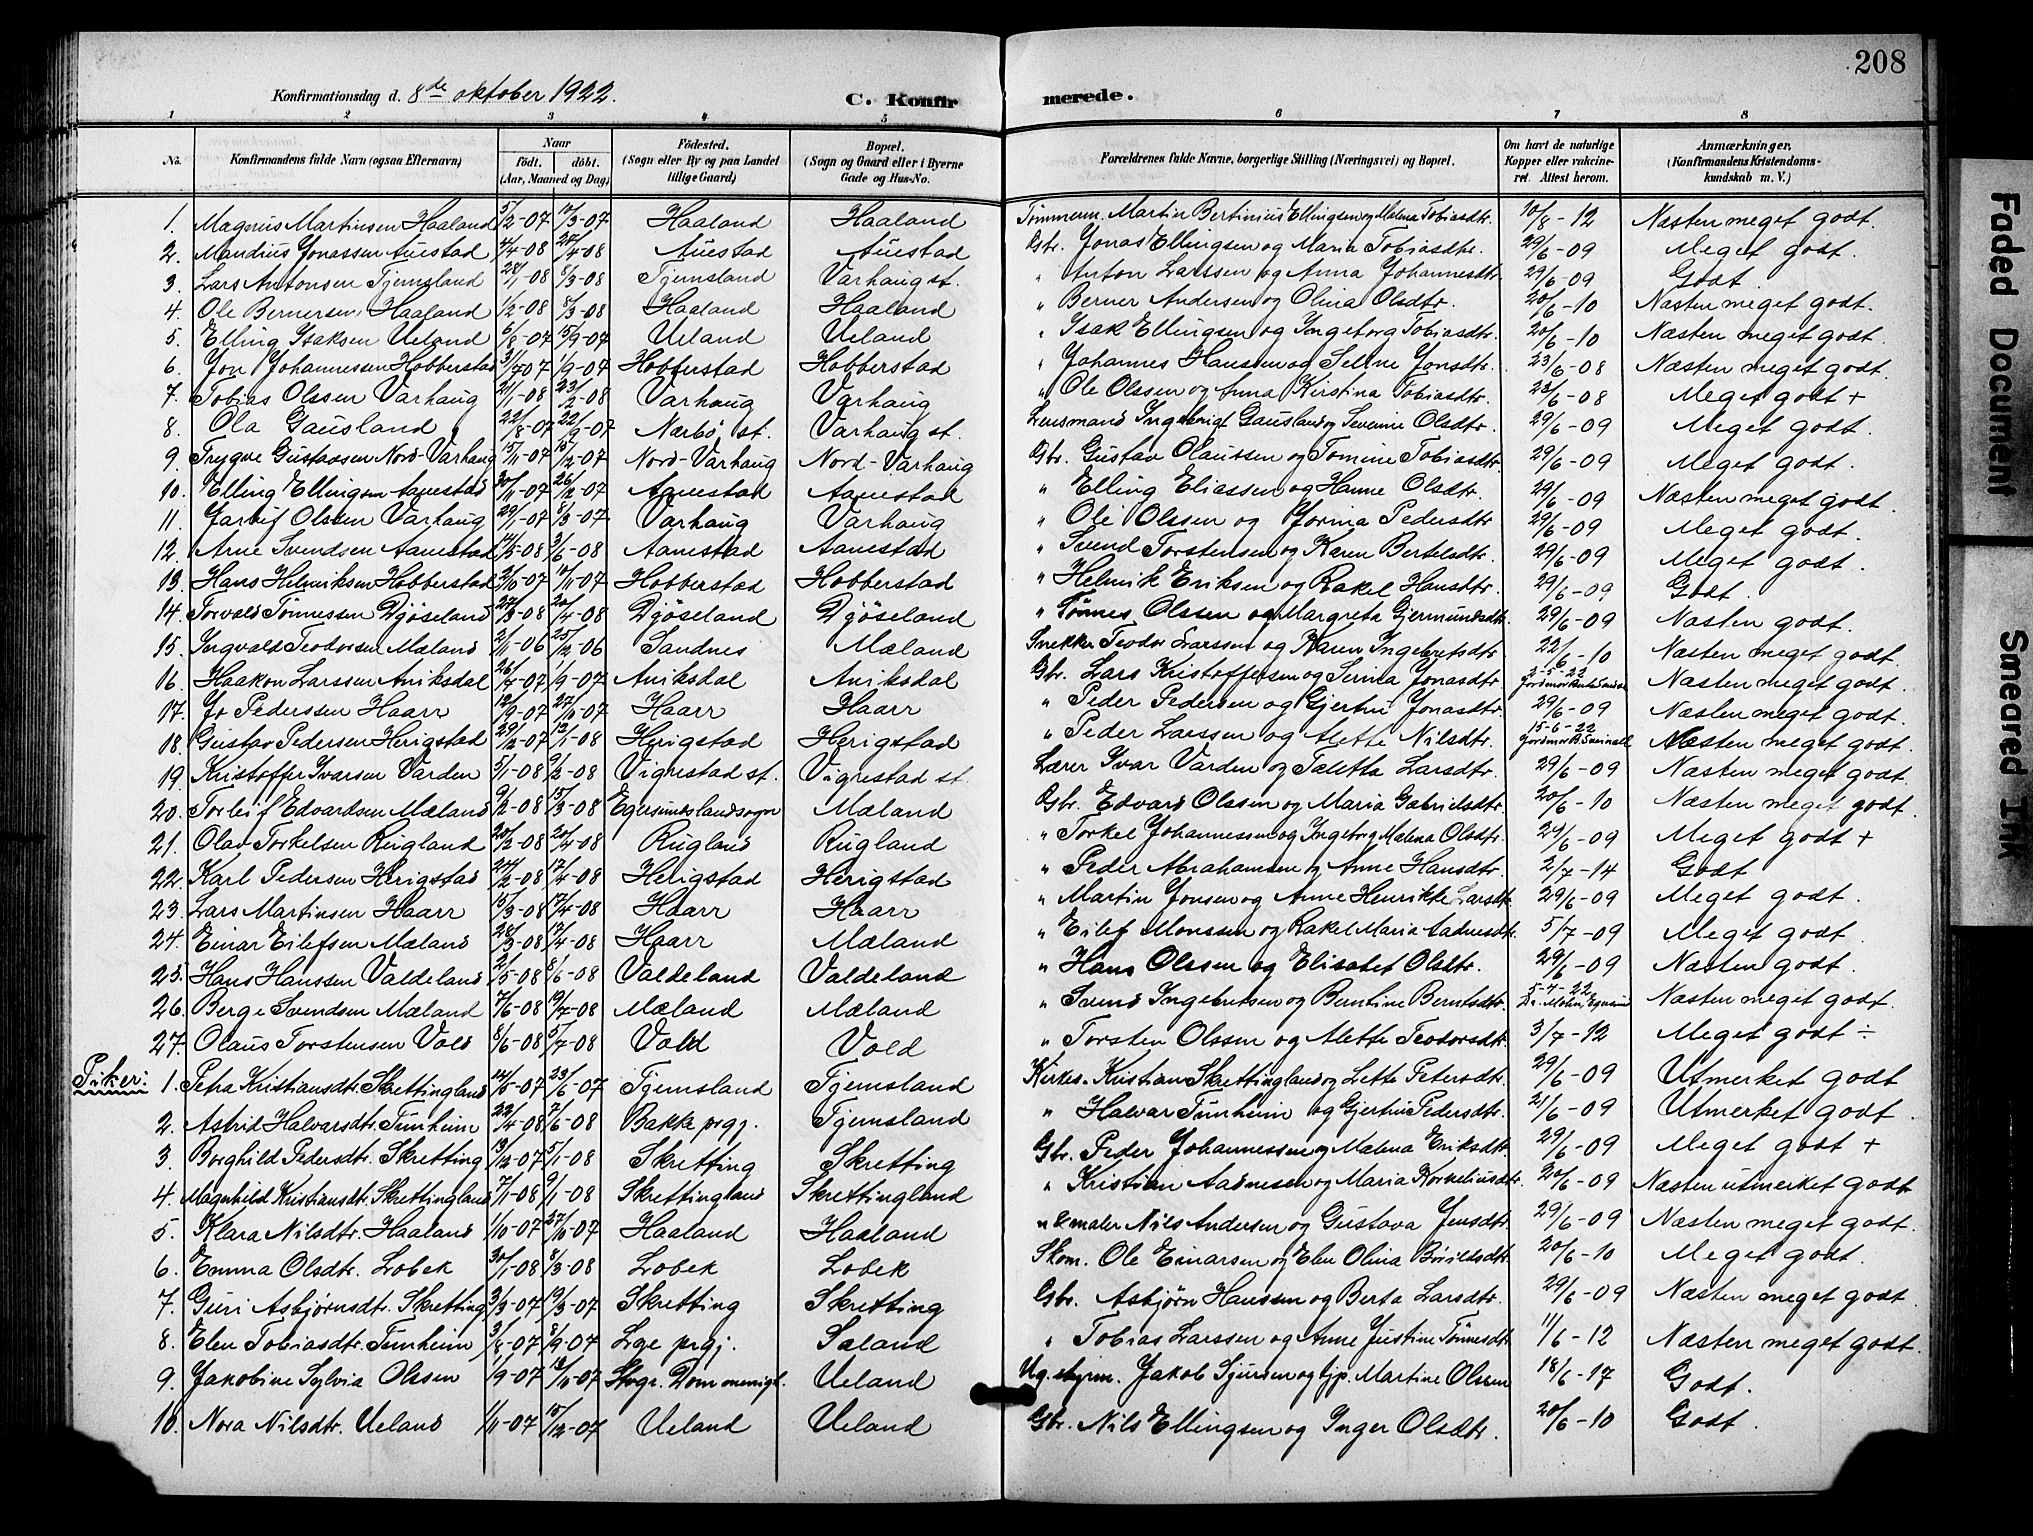 208
Konfirmationsdag d. 8de oktober 1922. C. Konfirmerede.
1 2 3 4 5 6 7 8
No. Konfirmandens fulde Navn (ogsaa Efternavn) Naar født. døbt. (Aar, Maaned og Dag) Fødested. (Sogn eller By og paa Landet tillige Gaard) Bopæl. (Sogn og Gaard eller i Byerne Gade og Hus-No. Forældrenes fulde Navne, borgerlige Stilling (Næringsvei) og Bopæl. Om havt de naturlige Kopper eller vakcineret. Attest herom. Anmærkninger. (Konfirmandens Kristendomskundskab m. V.)
1. Magnus Martinsen Haaland 5/2-07 10/3-07 Haaland Haaland Tømmerm. Martin Bertinius Ellingsen og Malena Tobiasdtr. 10/8-12 Næsten meget godt.
2. Mandius Jonassen Auestad 4/4-08 20/4-08 Auestad Auestad Gbr. Jonas Ellingsen og Maria Tobiasdtr. 29/6-09 Meget godt.
3. Lars Antonsen Tjemsland 28/1-08 8/3-08 Tjemsland Varhaug st. " Anton Larssen og Anna Johannesdtr 29/6-09 Godt.
4. Ole Bernersen Haaland 1/2-08 8/3-08 Haaland Haaland " Berner Andersen og Olina Olsdtr. 20/6-10 Næsten meget godt.
5. Elling Isaksen Ueland 6/8-07 15/9-07 Ueland Ueland " Isak Ellingsen og Ingeborg Tobiasdtr. 20/6-10 Næsten meget godt.
6. Jon Johannesen Hobberstad 31/7 07 1/9-07 Hobberstad Hobberstad " Johannes Hansen og Seline Jonsdtr. 23/6-08 Næsten meget godt.
7. Tobias Olssen Varhaug 21/1-08 23/2-08 Varhaug Varhaug " Ole Olssen og Anna Kirstina Tobiasdtr. 23/6-08 Meget godt +
8. Ola Gausland 22/8-07 22/9-07 Nærbø st. Varhaug st. Lensmand Ingebrigt Gausland og Severine Olsdtr. 29/6-09 Meget godt.
9. Trygve Gustavsen Nord-Varhaug 15/11-07 15/12-07 Nord-Varhaug Nord-Varhaug Gbr. Gustav Olaussen og Tomine Tobiasdtr. 29/6-09 Meget godt.
10. Elling Ellingsen Aanestad 20/11-07 26/12-07 Aanestad Aanestad " Elling Eliassen og Hanne Olsdtr. 29/6-09 Næsten meget godt.
11. Olsen Varhaug 29/1-07 8/3-07 Varhaug Varhaug " Ole Olssen og Jorina Pedersdtr 29/6-09 Meget godt.
12. Arne Svendsen Aanestad 17/5-08 3/6-08 Aanestad Aanestad " Svend Torstensen og Karen Berteldtr. 29/6-09 Meget godt.
13. Hans Helmiksen Hobberstad 2/10-07 17/11-07 Hobberstad Hobberstad " Helmik Eriksen og Rakel Hansdtr. 29/6-09 Godt.
14. Torvald Tønnessen Djøseland 27/3-08 20/4-08 Djøseland Djøseland " Tønnes Olssen og Margreta Gjermundsdtr. 29/6-09 Næsten godt.
15. Ingvald Teodorsen Mæland 2/11-06 25/12-06 Sandnes Mæland Snekker Teodor Larssen og Karen Ingebretsdtr. 22/6-10 Næsten meget godt.
16. Haakon Larssen Aniksdal 26/7-07 1/9-07 Aniksdal Aniksdal Gbr. Lars Kristoffersen og Serina Jonasdtr 2-5-22 Næsten meget godt.
17. Jo Pederssen Haarr 12/9-07 27/10-07 Haarr Haarr " Peder Pedersen og Gjertine Jonasdtr. 29/6-09 Næsten meget godt.
18. Gustav Pedersen Herigstad 29/12-07 12/1-08 Herigstad Herigstad " Peder Larssen og Alette Nilsdtr. 15-6-22 Næsten meget godt.
19. Kristoffer Ivarsen Varden 5/1-08 9/2-08 Vigrestad st. Vigrestad st. Lærer Ivar Varden og Taletta Larsdtr. 29/6-09 Næsten meget godt.
20. Torleif Edvardsen Mæland 9/2-08 15/3-08 Egersunds landsogn Mæland Gbr. Edvard Olssen og Maria Gabrielsdtr. 20/6-10 Næsten meget godt.
21. Olav Torkelsen Rugland 20/2-08 20/4-08 Rugland Rugland " Torkel Johannessen og Ingeborg Malena Olsdtr. 29/6-09 Meget godt +
22. Karl Pedersen Herigstad 24/2-08 17/4-08 Herigstad Herigstad " Peder Abrahamsen og Anne Hansdtr. 2/7-14 Godt
23. Lars Martinsen Haarr 15/3-08 17/4-08 Haarr Haarr " Martin Jonsen og Anne Henrikke Larsdtr 29/6-09 Meget godt.
24. Einar Eilefsen Mæland 28/3-08 17/4-08 Haarr Mæland " Eilef Monssen og Rakel Maria Aadnesdtr. 5/7-09 Meget godt.
25. Hans Hanssen Valdeland 2/5-08 8/6-08 Valdeland Valdeland " Hans Olssen og Elisabet Olsdtr. 29/6-09 Næsten godt.
26. Berge Svendsen Mæland 7/6-08 19/7-08 Mæland Mæland " Svend Ingebretsen og Berntine Berntsdtr. 5-4-22 Næsten meget godt.
27. Olaus Torstensen Vold 8/6-08 5/7-08 Vold Vold " Torsten Olssen og Alette Teodorsdtr. 3/7-12 Meget godt ÷
Piker:
1. Petra Kristiansdtr. Skrettingland 24/5-07 23/6-07 Tjemsland Tjemsland Kirkes. Kristian Skrettingland og Lette Petersdtr. 29/6-09 Utmerket godt
2. Astrid Halvarsdtr. Tunheim 22/4-08 7/6-08 Bakke prgj. Tjemsland " Halvar Tunheim og Gjertine Pedersdtr. 21/6-09 Utmerket godt.
3. Borghild Pedersdtr. Skretting 13/12-07 5/1-08 Skretting Skretting Gbr. Peder Johannessen og Malena Eriksdtr. 29/6-09 Meget godt +
4. Magnhild Kristiansdtr. Skrettingland 7/1-08 9/1-08 Skrettingland Skrettingland " Kristian Aadnesen og Maria Korneliusdtr. 20/6-09 Næsten utmerket godt
5. Klara Nilsdtr. Haaland 1/10-07 27/10-07 Haaland Haaland " & maler Nils Andersen og Gustava Jensdtr. 29/6-09 Næsten meget godt.
6. Emma Olsdtr. Lobek 30/1-08 8/3-08 Lobek Lobek Skom. Ole Einarsen og Elen Olina 20/6-10 Meget godt.
7. Guri Asbjørnsdtr. Skretting 3/3-07 19/3-07 Skretting Skretting Gbr. Asbjørn Hanssen og Berta Larsdtr. 29/6-09 Næsten meget godt.
8. Elen Tobiasdtr. Tunheim 3/8-07 8/9-07 Lye prgj. Sæland " Tobias Larssen og Anne Justine Tønnesdtr 11/6-12 Næsten meget godt.
9. Jakobine Sylvia Olssen 1/9-07 18/10-07 Stvgr. Dommenigh. Ueland Ug. styrm. Jakob Sjursen og tjp. Martine Olssen 18/6-17 Godt.
10. Nora Nilsdtr. Ueland 1/11-07 15/12-07 Ueland Ueland Gbr. Nils Ellingsen og Inger Olsdtr. 20/6-10 Godt.
Faded Document
Smeared Ink